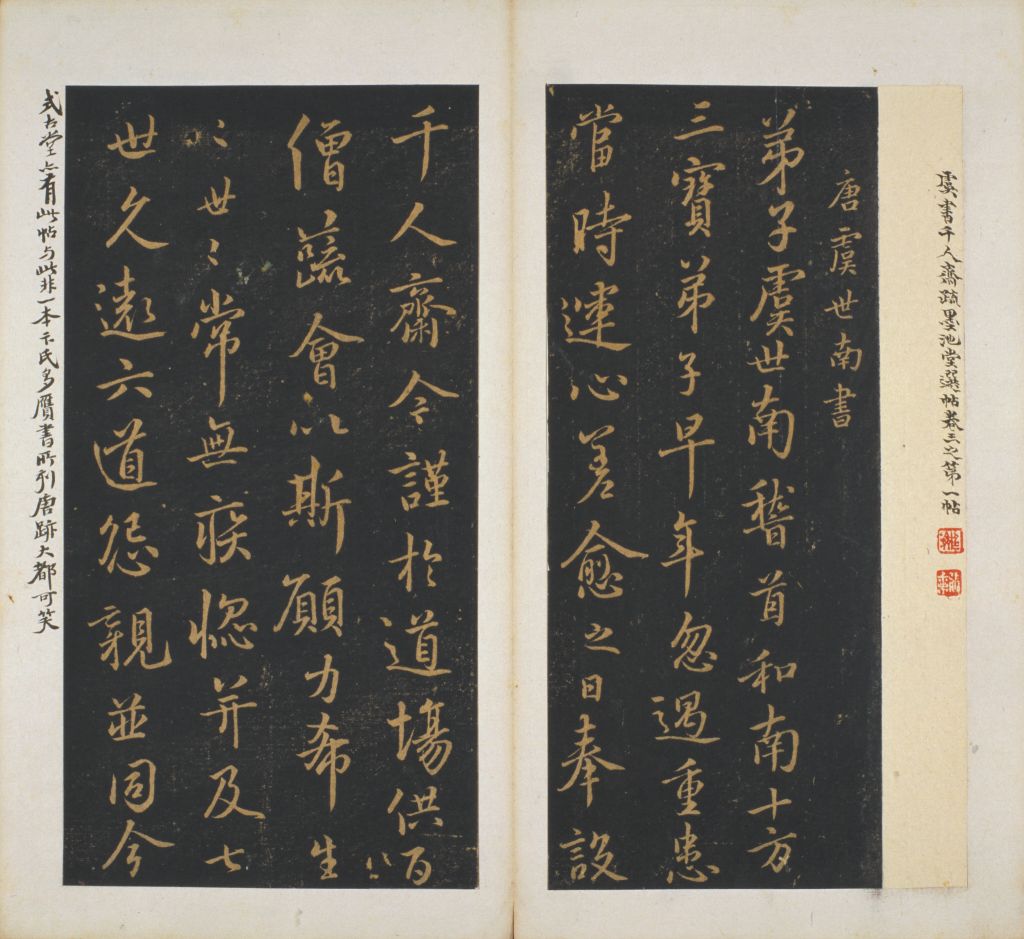 虞書千人齋疏墨池堂選帖卷三之第一帖
唐虞世南書
弟子虞世南稽首和南十方
三寶弟子早年忽遇重患
當時運心差愈之日奉設
千人齋今謹於道場供百
僧蔬會以斯願力希生
〻世〻常無疾惱并及七
世久遠六道怨親並同今
式古堂亦有此帖与此非一本卞氏多贋書所刋唐跡大都可笑